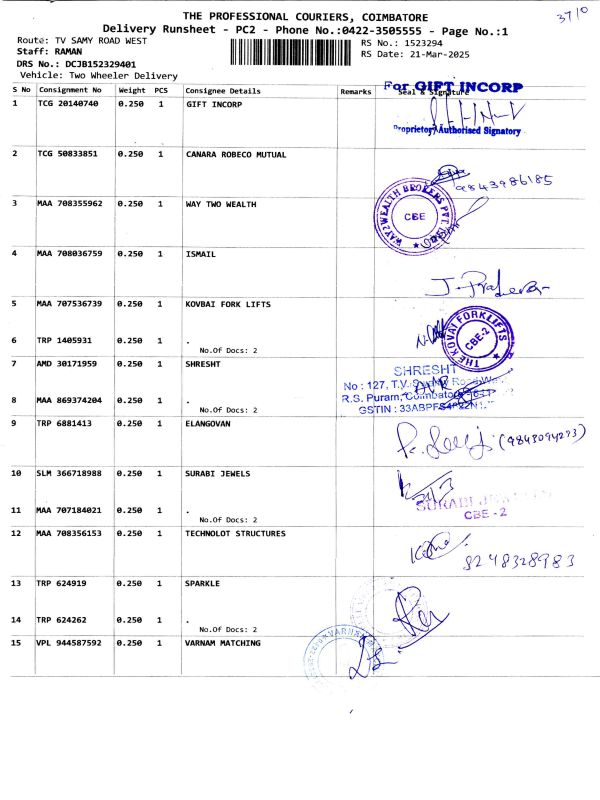 THE PROFESSIONAL COURIERS, COIMBATORE
37/0
Delivery Runsheet - PC2 - Phone No.:0422-3505555 - Page No.:1
Route: TV SAMY ROAD WEST
RS No.: 1523294
Staff: RAMAN
RS Date: 21-Mar-2025
DRS No.: DCJB152329401
Vehicle: Two Wheeler Delivery
S No Consignment No Weight PCS Consignee Details Remarks Seal & Signature
For GIFT INCORP
1 TCG 20140740 0.250 1 GIFT INCORP
Proprietor/Authorised Signatory
2 TCG 50833851 0.250 1 CANARA ROBECO MUTUAL
9843986185
3 MAA 708355962 0.250 1 WAY TWO WEALTH
WAY2WEALTH BROKERS PVT.
CBE
4 MAA 708036759 0.250 1 ISMAIL
5 MAA 707536739 0.250 1 KOVBAI FORK LIFTS
THE KOVAI FORKLIFTS
CBE-2
6 TRP 1405931 0.250 1 .
No.Of Docs: 2
7 AMD 30171959 0.250 1 SHRESHT
SHRESHT
No : 127, T.V. Road
8 MAA 869374204 0.250 1 .
R.S. Puram, Coimbatore
No.Of Docs: 2
GSTIN :
9 TRP 6881413 0.250 1 ELANGOVAN
(9843094273)
10 SLM 366718988 0.250 1 SURABI JEWELS
SURABI
11 MAA 707184021 0.250 1 .
CBE - 2
No.Of Docs: 2
12 MAA 708356153 0.250 1 TECHNOLOT STRUCTURES
8248328983
13 TRP 624919 0.250 1 SPARKLE
14 TRP 624262 0.250 1 .
No.Of Docs: 2
15 VPL 944587592 0.250 1 VARNAM MATCHING
VARNAM